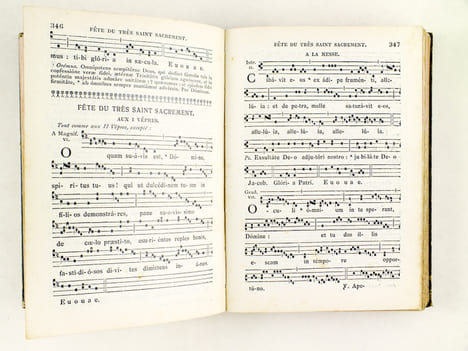 346
FÊTE DU TRÈS SAINT SACREMENT,
mus : tibi gló-ri- a in sæ-cu-la. E u o u a e.
℣ Orémus. Omnípotens sempitérne Deus, qui dedísti fámulis tuis in
confessióne veræ fídei, ætérnæ Trinitátis glóriam agnóscere, et in
poténtia majestátis adoráre unitátem : quǽsumus, ut ejúsdem fídei
firmitáte, * ab ómnibus semper muniámur advérsis. Per Dóminum.
FÊTE DU TRÈS SAINT SACREMENT,
AUX I VÊPRES.
Tout comme aux II Vêpres, excepté :
A Magníf.
VI.
O quam su-á-vis est, * Dó- mi-ne,
spí- ri- tus tu- us ! qui ut dulcé-di-nem tu-am in
fí-li-os demonstrá-res, pane su-a-vís-si-mo
de cæ-lo præsti-to, esu-ri-éntes reples bonis,
fa-sti-di-ó-sos di-vi- tes dimíttens in- á-nes.
E u o u a e.
FÊTE DU TRÈS SAINT SACREMENT,
347
A LA MESSE.
Intr.
II.
C ibá-vit e- os * ex ádi-pe fruménti- i, alle-
lú-ia : et de pe-tra, melle sa-tu-rá-vit e-os,
alle-lú-ia, alle-lú-ia, alle- lú-ia.
Ps. Exsultáte De-o adju-tóri nostro : * ju-bi-lá-te De-o
Ja-cob. Glóri-a Patri. E u o u a e.
Grad.
VII.
O cu-li * ómni- um in te spe-rant,
Dómine : et tu das il-lis
e-scam in témpo- re oppor-
tú-no. ℣. Ape-